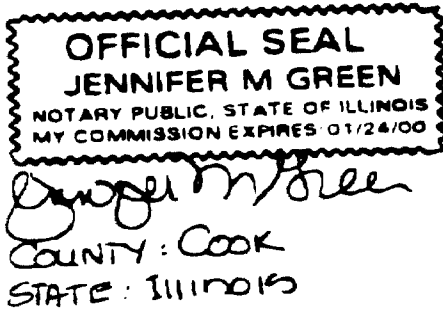 OFFICIAL SEAL
JENNIFER M GREEN
NOTARY PUBLIC, STATE OF ILLINOIS
MY COMMISSION EXPIRES 01/24/00
Jennifer M Green
COUNTY: COOK
STATE: IllINOIS